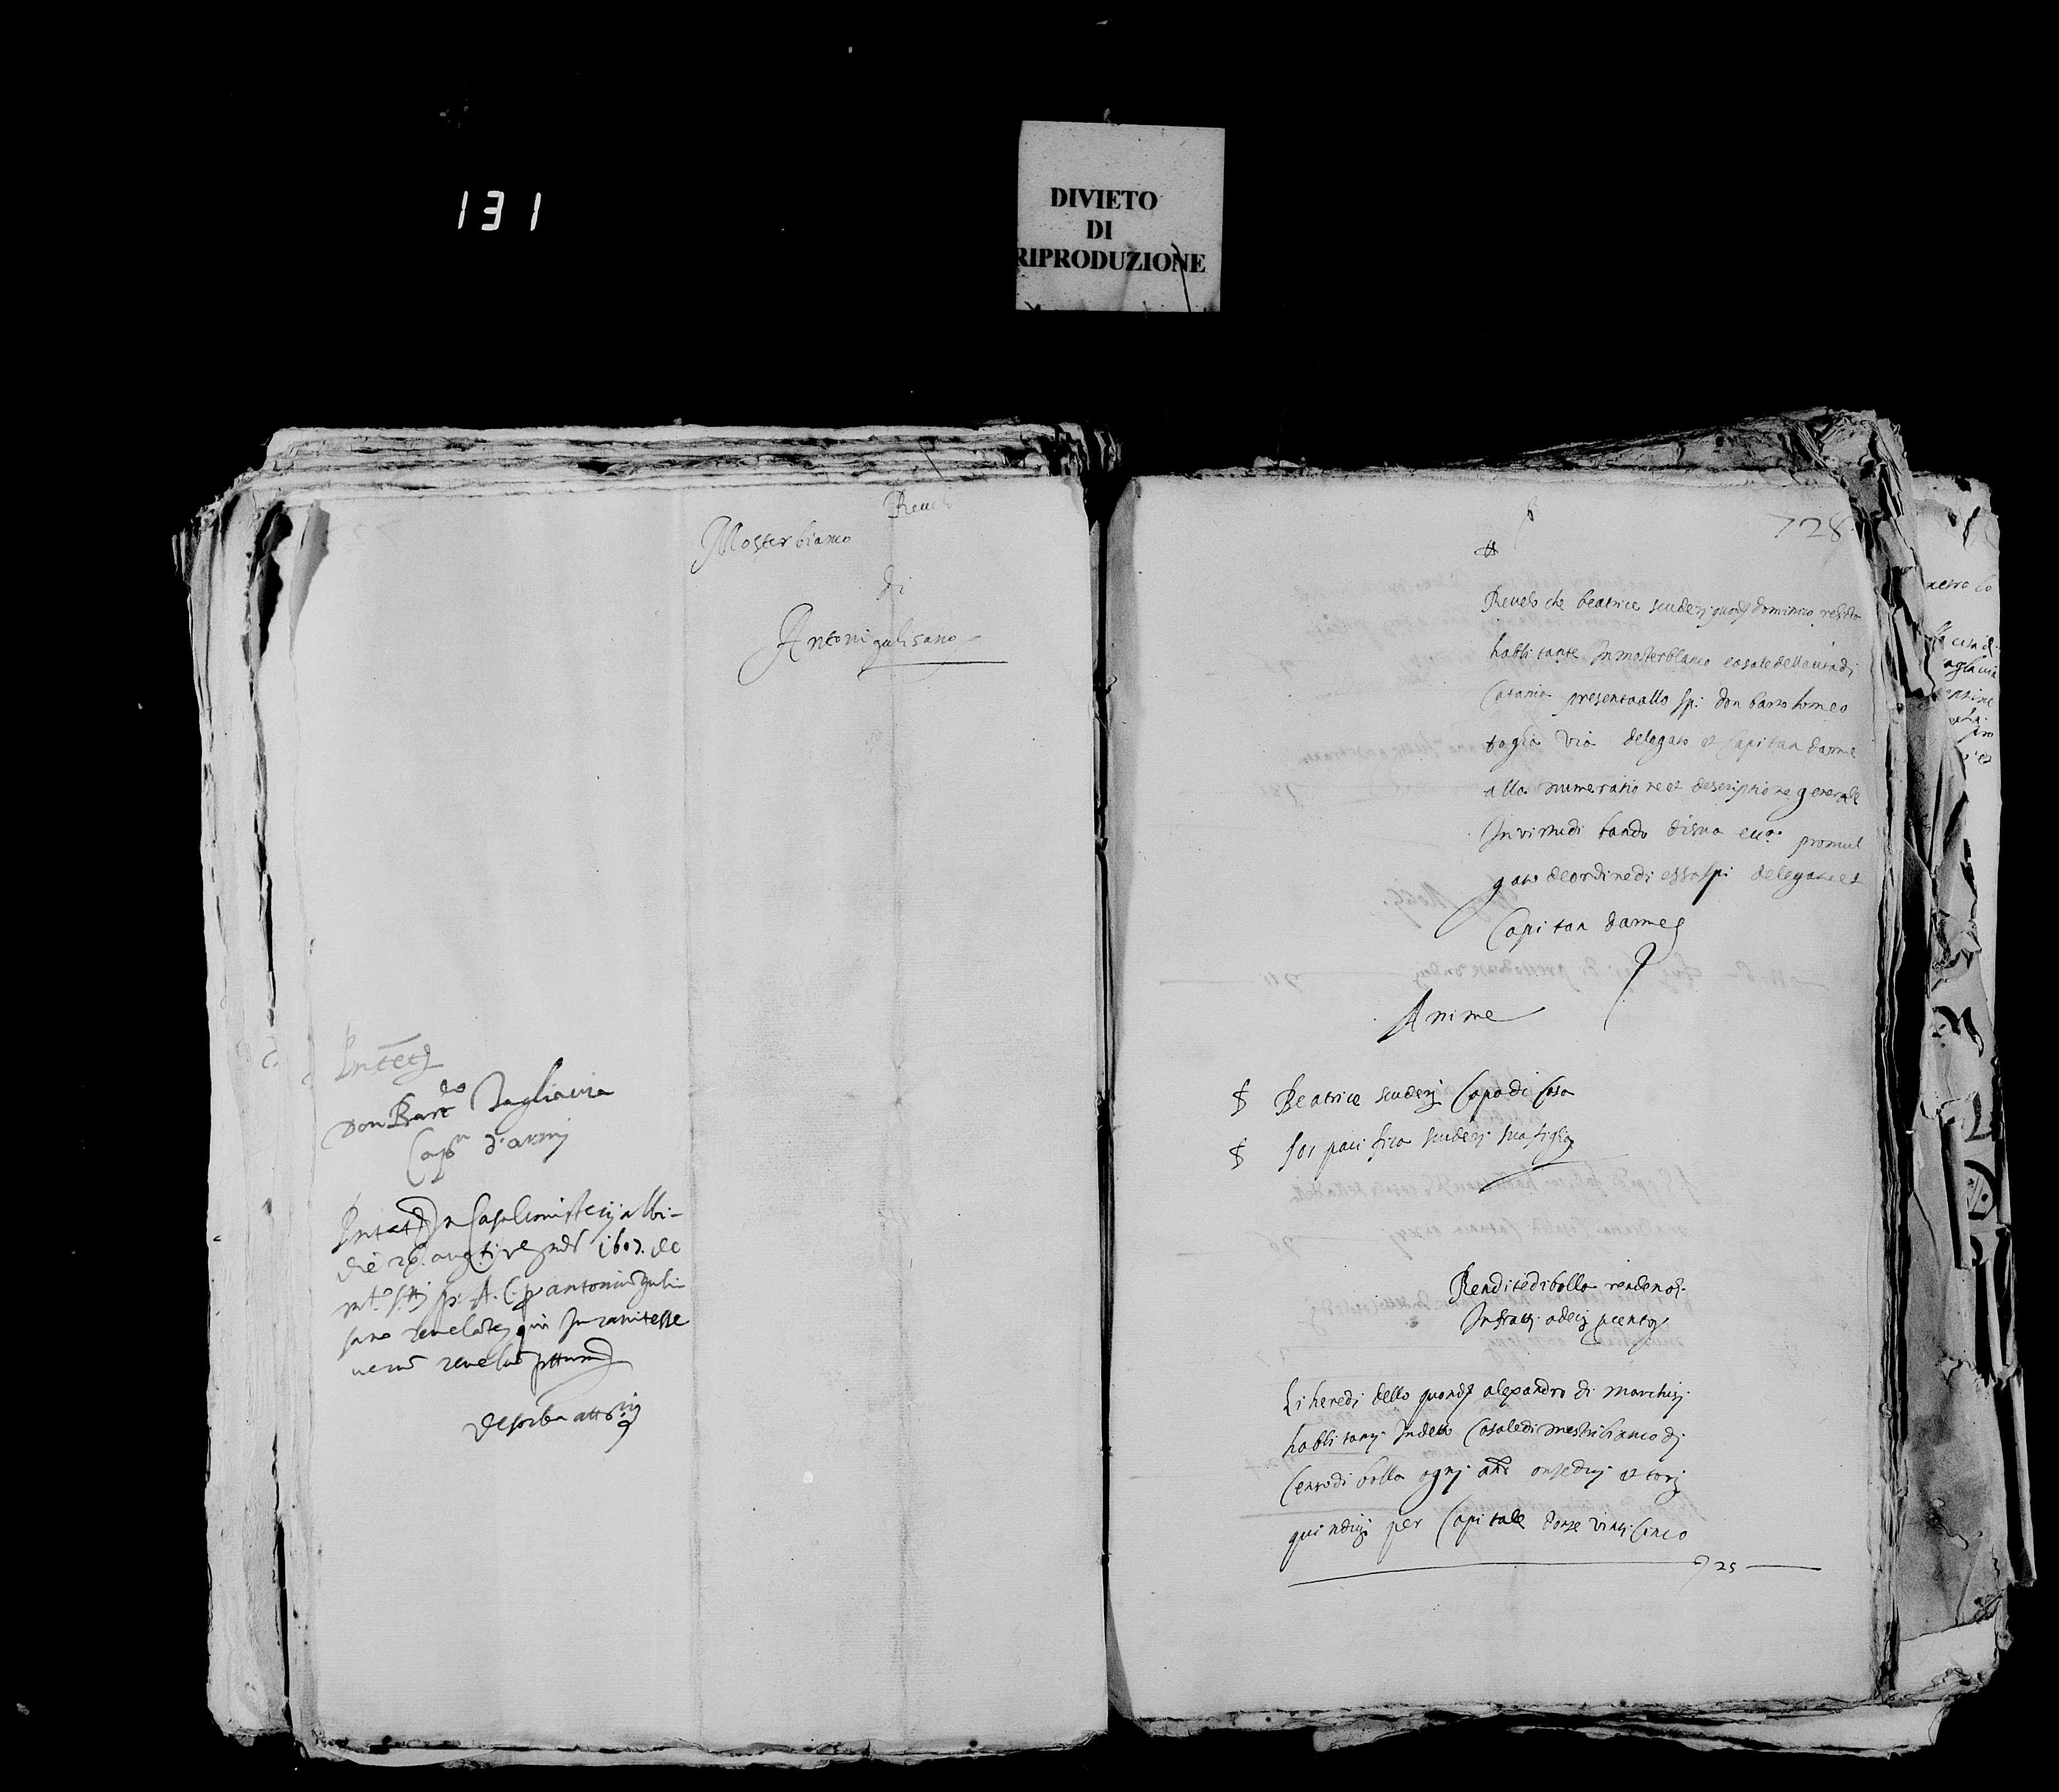 131
DIVIETO
DI
RIPRODUZIONE
Revelo
Mosterbianco
di
Antoni gulisano
Don Bart.eo Tagliavia
Cap.n d'armi
die 26 augusti 1607. de
sano revelante qui Juravit esse
verum revelum
728
Revelo che beatrice scuderj quond. dominico relitta
habbitante In mosterblanco casale della cita dj
Catania presenta allo sp: don bartolomeo
taglia via delegato et Capitan darme
alla numeratione et descriptione generale
In virtu di bando di sua ecc.a promul
gato de ordine di esso sp: delegato et
Capitan darme
Anime
Beatrice scuderj Capo di Casa
Sor pacifica scuderj sua figlia
Rendite di bolla
Infratti a decj per cento
Li heredi dello quond. alexandro di marchisj
habbitantj In detto Casale di mestribianco dj
Censo di bolla ognj anno onze duj et tarj
quindicj per Capitale d'onze vinti Cinco
25